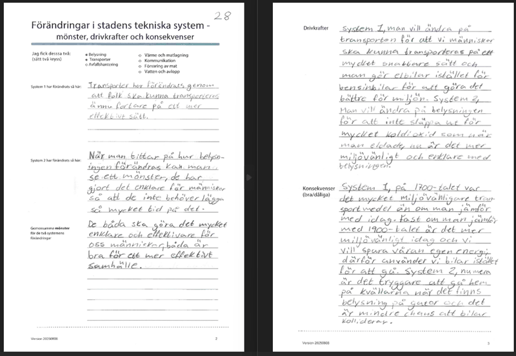 28
Förändringar i stadens tekniska system -
mönster, drivkrafter och konsekvenser
Jag fick dessa två:
(sätt två kryss)
Belysning
Transporter
Avfallshantering
Värme och matlagning
Kommunikation
Förvaring av mat
Vatten och avlopp
System 1 har förändrats så här:
Transporter har förändrats genom
att folk ska kunna transporteras
ännu fortare på ett mer
effektivt sätt.
System 2 har förändrats så här:
När man tittar på hur belys-
ningen förändras kan man
se ett mönster, de har
gjort det enklare för människor
så att de inte behöver lägga
så mycket tid på det.
förändringar
De båda ska göra det mycket
enklare och effektivare för
oss människor, båda är
bra för ett mer effektivt
samhälle.
2
Drivkrafter
System 1, man vill ändra på
transporten för att vi människor
ska kunna transporteras på ett
mycket snabbare sätt och
man gör elbilar istället för
bensinbilar för att göra det
bättre för miljön. System 2,
Man vill ändra på belysningen
för att inte släppa ut för
mycket koldioxid som när
man eldade, nu är det mer
miljövänligt och enklare med
belysningen.
Konsekvenser
(bra/dåliga)
System 1, på 1900-talet var
det mycket miljövänligare tran-
sportmedel än om man jämför
med idag. Fast om man jämför
med 1900-talet är det mer
miljövänligt idag och vi
vill spara våran egen energi
därför använder vi bilar istället
för att gå. System 2, numera
är det tryggare att gå hem
på kvällarna när det finns
belysning på gator och det
är mindre chans att bilar
kolliderar.
3